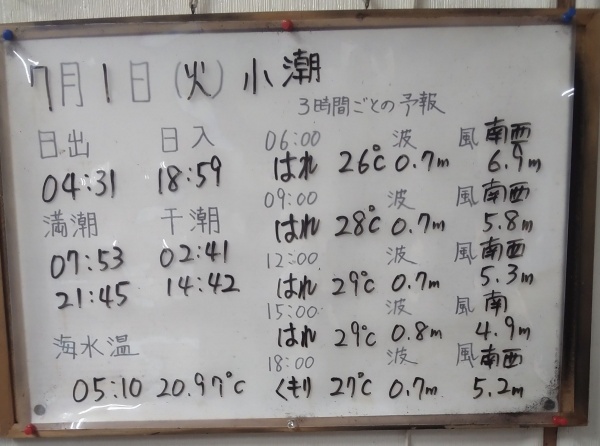 7月1日(火)小潮
3時間ごとの予報
日出 日入
04:31 18:59
満潮 干潮
07:53 02:41
21:45 14:42
海水温
05:10 20.97℃
06:00 波 風 南西
はれ 26℃ 0.7m 6.9m
09:00 波 風 南西
はれ 28℃ 0.7m 5.8m
12:00 波 風 南西
はれ 29℃ 0.7m 5.3m
15:00 波 風 南
はれ 29℃ 0.8m 4.9m
18:00 波 風 南西
くもり 27℃ 0.7m 5.2m